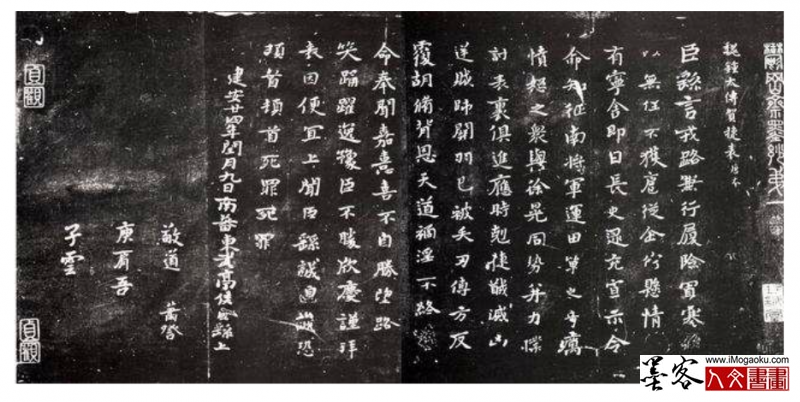 鬱岡齋墨妙第一
魏鍾太傅賀捷表唐本
臣繇言戎路兼行履險冒寒臣
以無任不獲扈從企佇懸情無
有寧舍即日長史逯充宣示令
命知征南將軍運田單之奇厲
憤怒之衆與徐晃同勢并力撲
討表裏俱進應時剋捷馘滅凶
逆賊帥關羽已被矢刃傅方反
覆胡脩背恩天道禍淫不終厥
命奉聞嘉憙喜不自勝望路載
笑踊躍逸豫臣不勝欣慶謹拜
表因便宜上聞臣繇誠惶誠恐
頓首頓首死罪死罪
建安廿四年閏月九日南蕃東武亭侯臣繇上
敬道 蕭答
庾肩吾
子雲
貞觀
貞觀
墨客
www.iMogaoku.com
人文書畫